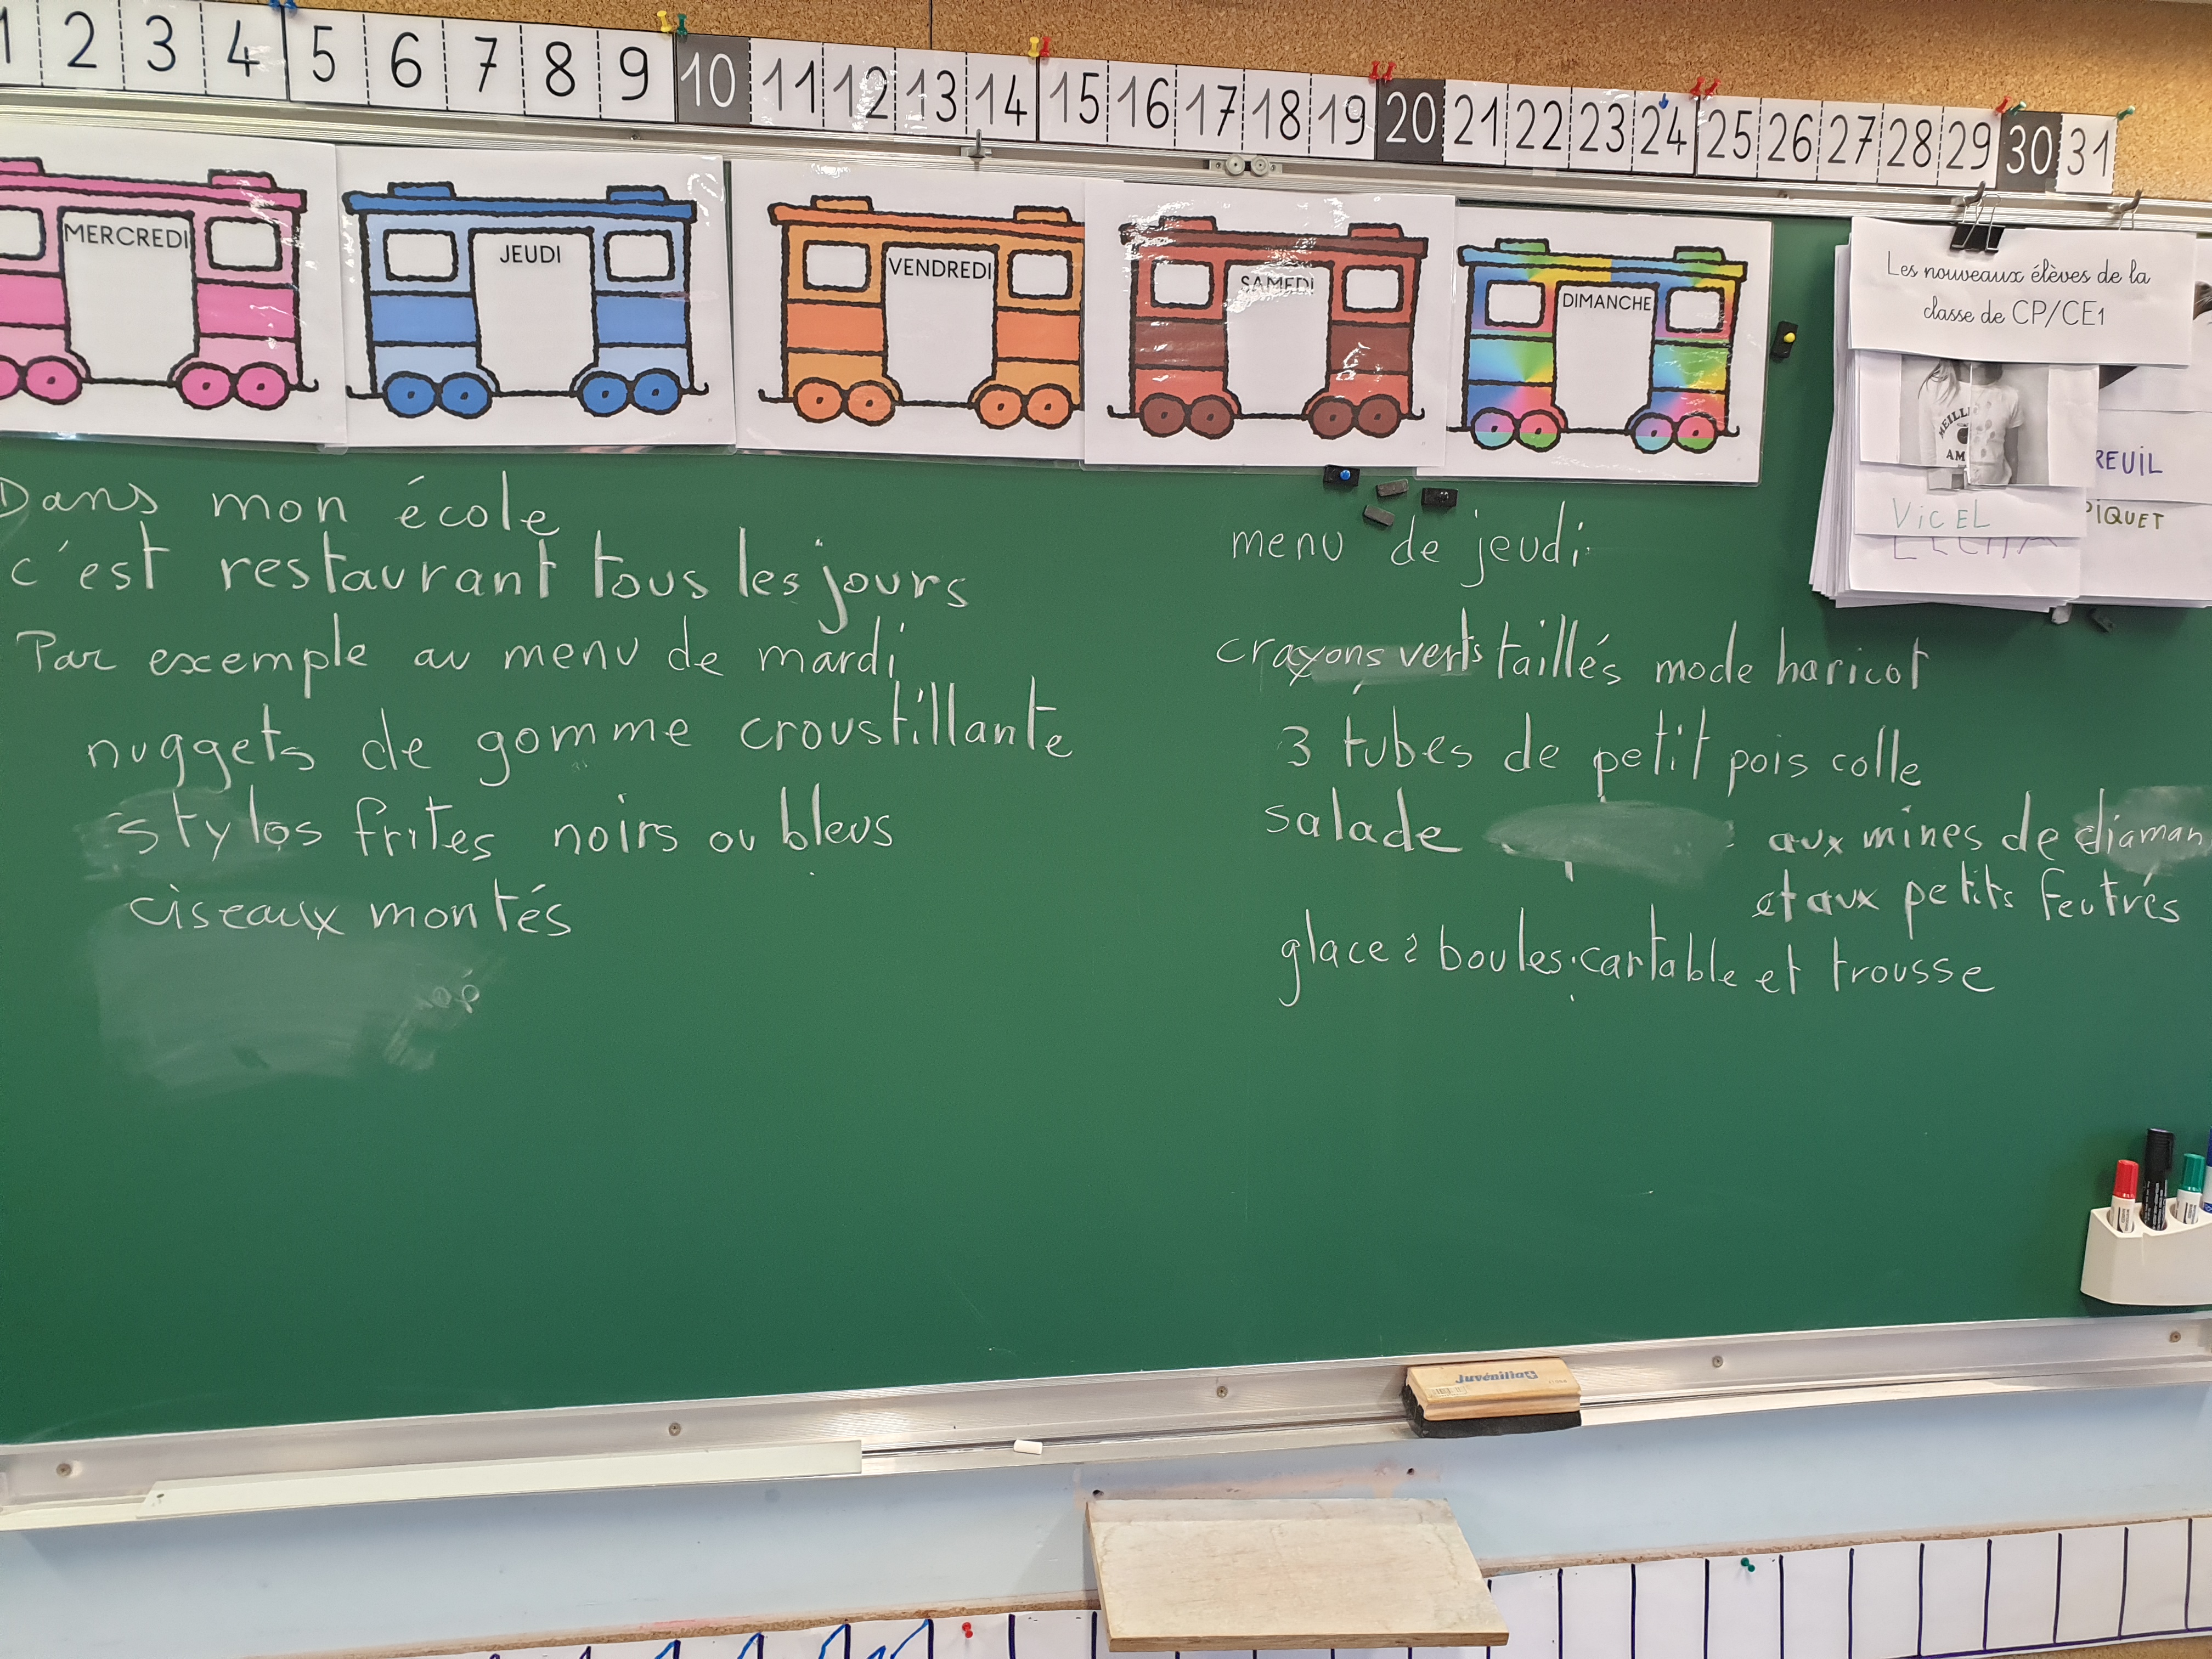 1 2 3 4 5 6 7 8 9 10 11 12 13 14 15 16 17 18 19 20 21 22 23 24 25 26 27 28 29 30 31
MERCREDI
JEUDI
VENDREDI
SAMEDI
DIMANCHE
Les nouveaux élèves de la
classe de CP/CE1
MEILL
AM
REUIL
VICEL
PIQUET
Dans mon école
c'est restaurant tous les jours
Par exemple au menu de mardi
nuggets de gomme croustillante
stylos frites noirs ou bleus
ciseaux montés
menu de jeudi
crayons verts taillés mode haricot
3 tubes de petit pois colle
salade aux mines de diaman
et aux petits feutrés
glace 2 boules cartable et trousse
Juvénilia